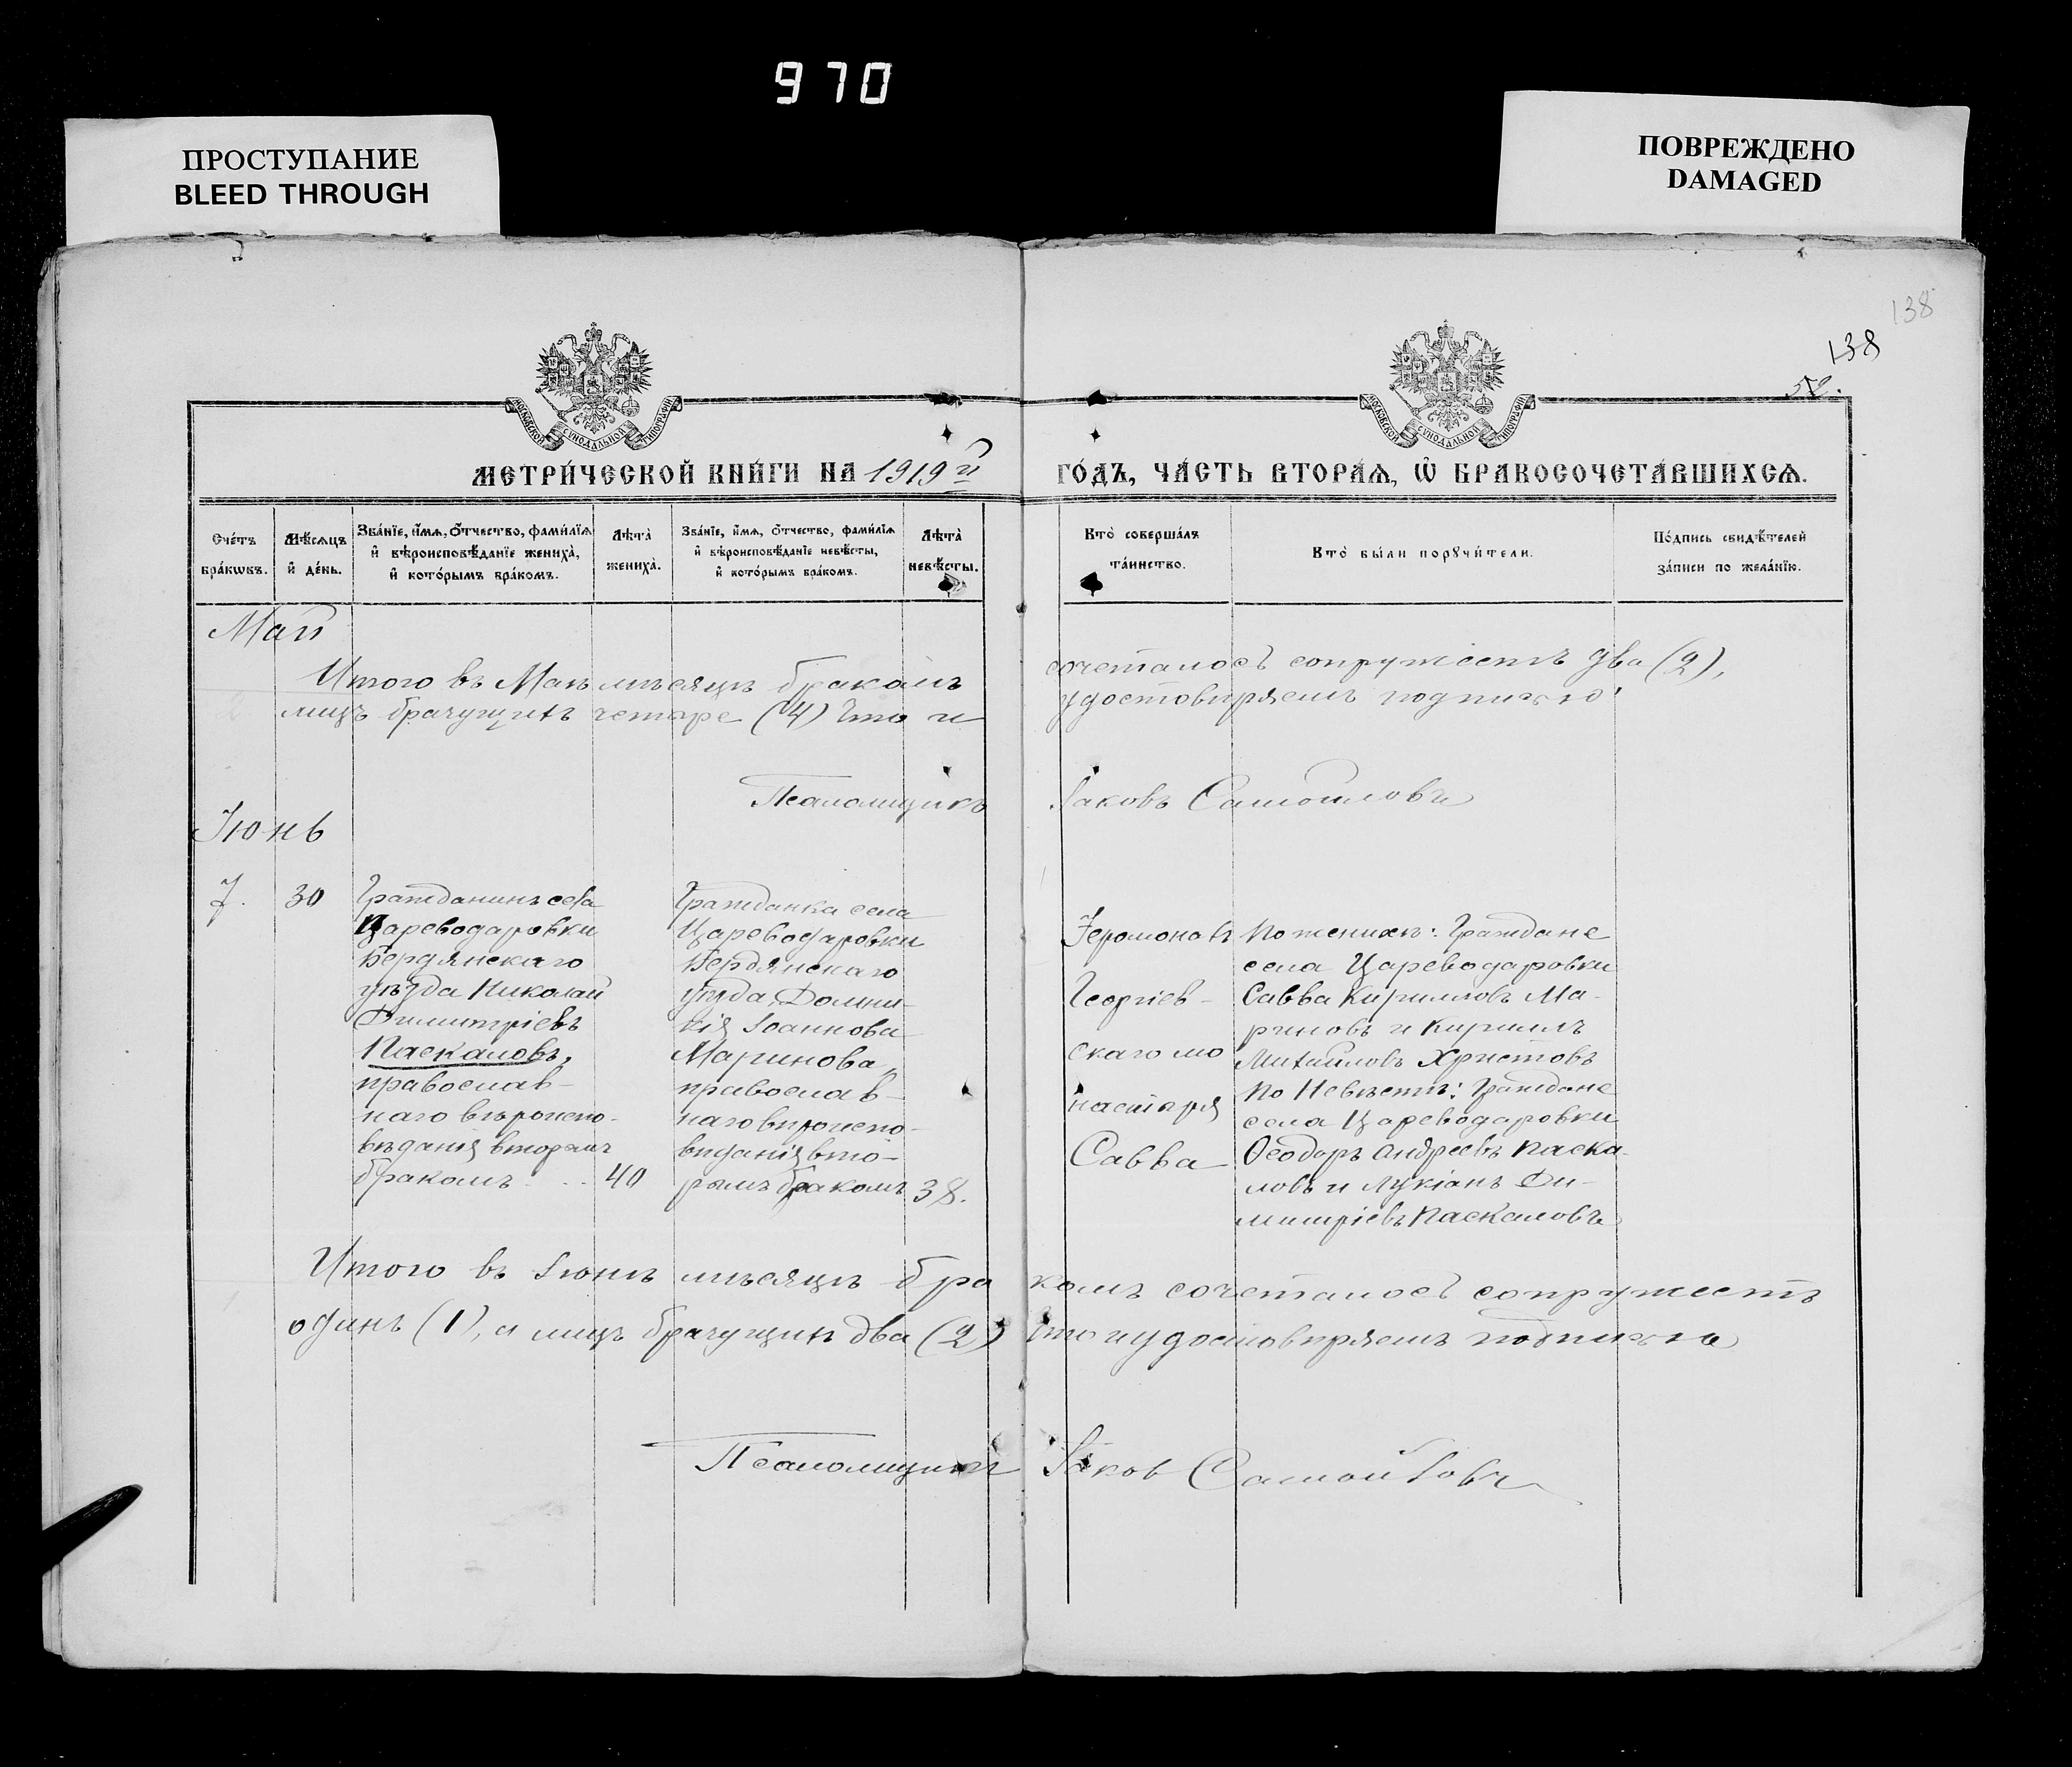 970
ПРОСТУПАНИЕ
BLEED THROUGH
ПОВРЕЖДЕНО
DAMAGED
138
138
МОСКОВСКОЙ СѴНОДАЛЬНОЙ ТИПОГРАФІИ
МОСКОВСКОЙ СѴНОДАЛЬНОЙ ТИПОГРАФІИ
МЕТРИ́ЧЕСКОЙ КНИ́ГИ НА 1919й ГО́ДЪ, ЧА́СТЬ ВТОРА́Ѧ, Ѽ БРАКОСОЧЕТА́ВШИХСѦ.
Сче́тъ бра́кѡвъ.
Мѣ́сяцъ и҆ де́нь.
Зва́нїе, и҆́мѧ, о҆́тчество, фами́лїѧ и҆ вѣроисповѣ́данїе жениха̀, и҆ кото́рымъ бра́комъ.
Лѣта̀ жениха̀.
Зва́нїе, и҆́мѧ, о҆́тчество, фами́лїѧ и҆ вѣроисповѣ́данїе невѣ́сты, и҆ кото́рымъ бра́комъ.
Лѣта̀ невѣ́сты.
Кто̀ соверша́лъ та́инство.
Кто̀ бы́ли порꙋчи́тели.
По́дпись свидѣ́телей за́писи по жела́нїю.
Май
Итого въ Маѣ мѣсяцѣ бракомъ сочеталось супружествъ два (2),
лицъ брачущихъ четыре (4) Что и удостовѣряемъ подписью:
Псаломщикъ Іаковъ Самойловъ
Іюнь
7. 30
Гражданинъ села
Цареводаровки
Бердянскаго
уѣзда Николай
Димитріевъ
Паскаловъ,
православ-
наго вѣроиспо-
вѣданія вторымъ
бракомъ . . . 40
Гражданка села
Цареводаровки
Бердянскаго
уѣзда, Домни-
кія Іоаннова
Маринова,
православ-
наго вѣроиспо-
вѣданія вто-
рымъ бракомъ 38.
Іеромонахъ
Георгіев-
скаго мо
настыря
Савва
По женихѣ: Граждане
села Цареводаровки
Савва Кирилловъ Ма-
риновъ и Кириллъ
Михайловъ Христовъ
По Невѣстѣ: Граждане
села Цареводаровки
Ѳеодоръ Андреевъ Паска-
ловъ и Лукіанъ Ди-
митріевъ Паскаловъ
Итого въ Іюнѣ мѣсяцѣ бракомъ сочеталось супружествъ
одинъ (1), а лицъ брачущихъ два (2) Что и удостовѣряемъ подписью
Псаломщикъ Іаков Самойловъ